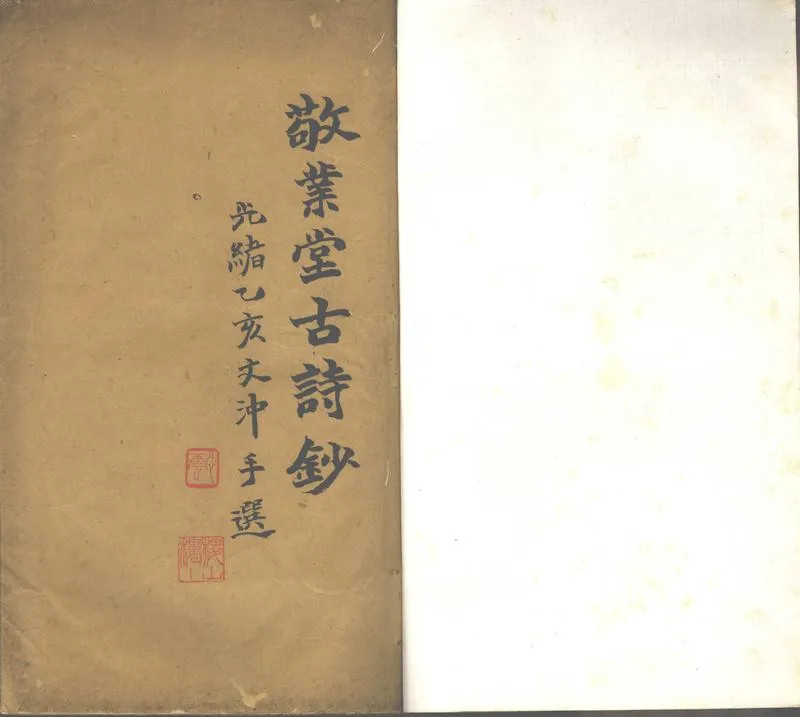 敬業堂古詩鈔
光緒乙亥文沖手選